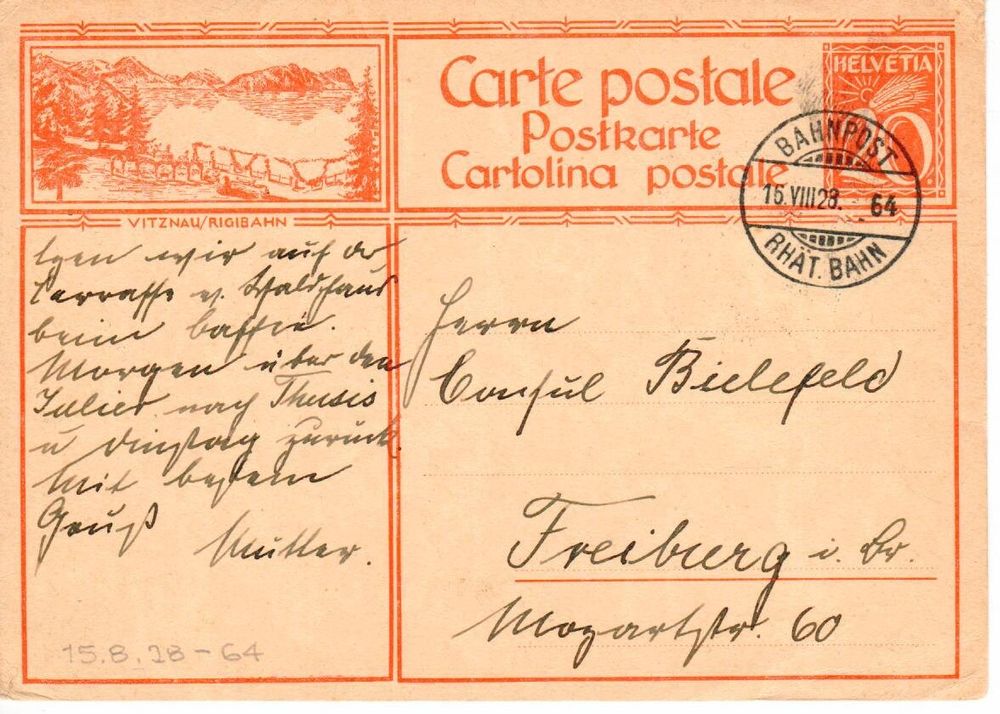 Carte postale
Postkarte
Cartolina postale
HELVETIA
20
BAHNPOST
15.VIII28. 64
RHÄT. BAHN
VITZNAU/RIGIBAHN
wir auf der
Terrasse v. Waldhaus
beim Caffee.
Morgen über den
Julier nach Thusis
u Dinstag zurück.
Mit bestem
Gruß
Mutter.
Herrn
Consul Bielefeld
Freiburg i. Br.
Mozartstr. 60
15.8.28-64